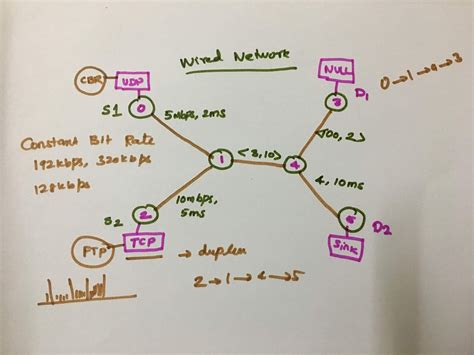 Wired Network
CBR
UDP
NULL
0→1→4→3
S1
0
5mbps, 2ms
3
D1
Constant Bit Rate
192kbps, 320kbps
128kbps
<3,10>
1
4
4, 10ms
10mbps,
5ms
S2
2
5
D2
FTP
TCP
→ duplex
Sink
2→1→4→5